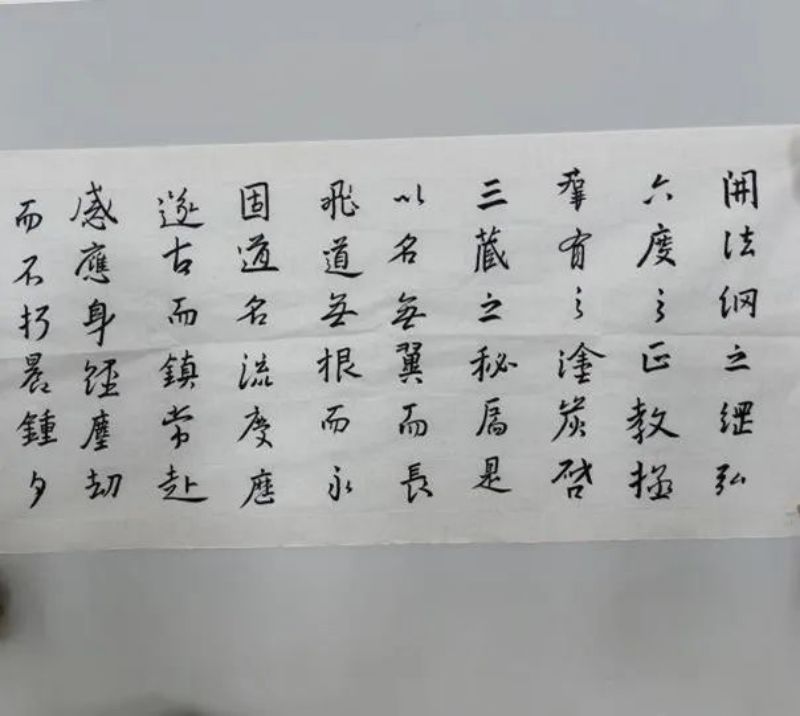 開法網之綱弘
六度之正教拯
群有之塗炭啓
三藏之秘扃是
以名無翼而長
飛道無根而永
固道名流慶歷
遂古而鎮常赴
感應身經塵劫
而不朽晨鍾夕